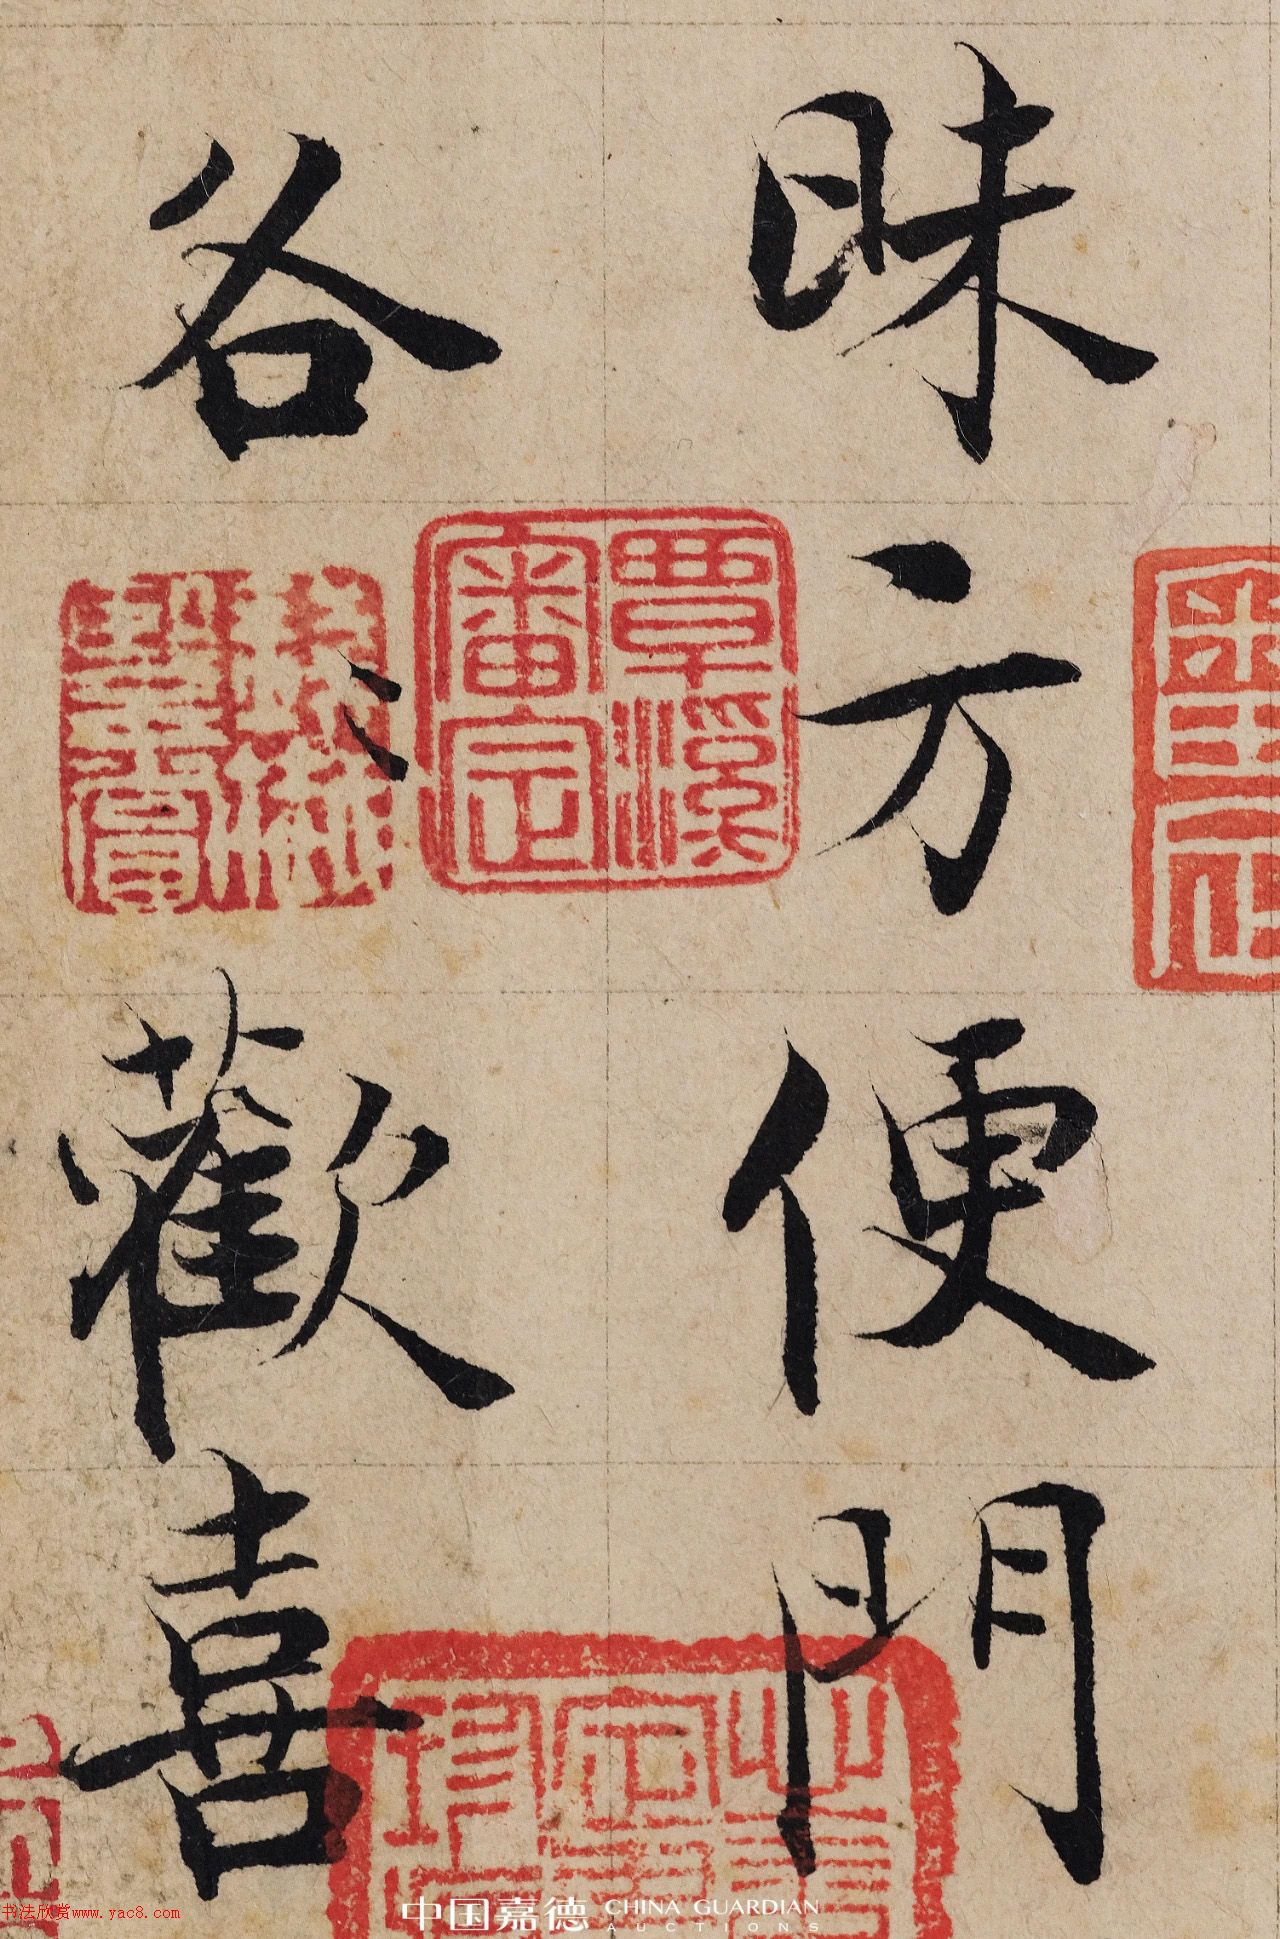 昧方便門
各〻歡喜
覃溪
審定
中国嘉德 CHINA GUARDIAN
AUCTIONS
书法欣赏www.yac8.com